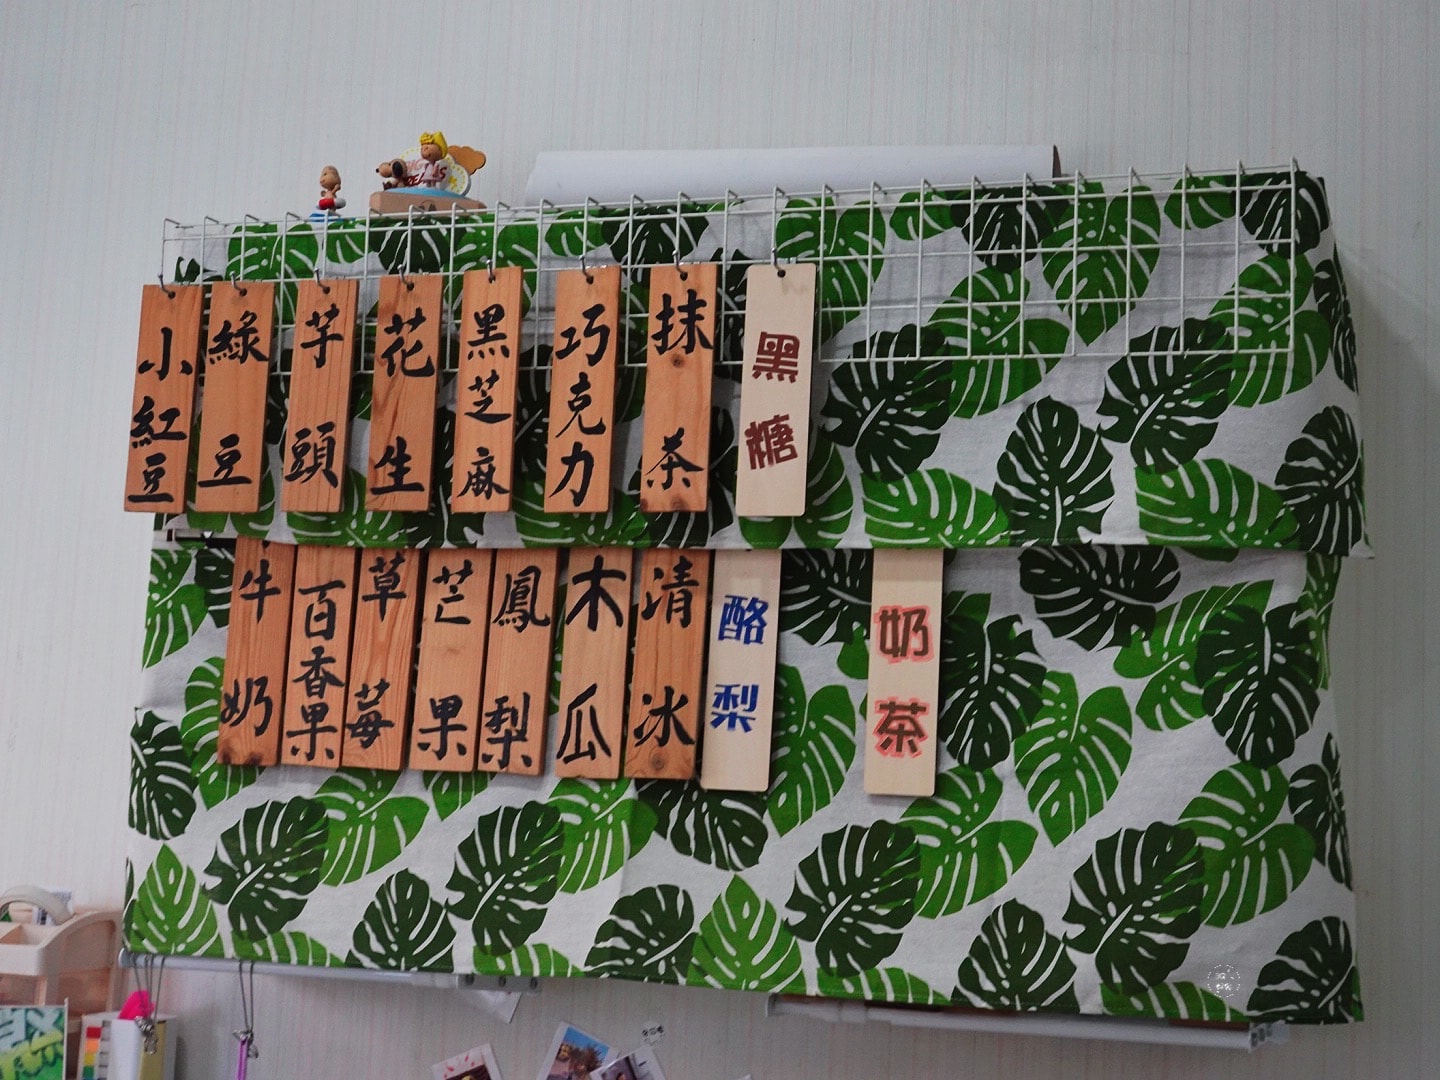 小紅豆
綠豆
芋頭
花生
黑芝麻
巧克力
抹茶
黑糖
牛奶
百香果
草莓
芒果
鳳梨
木瓜
清冰
酪梨
奶茶